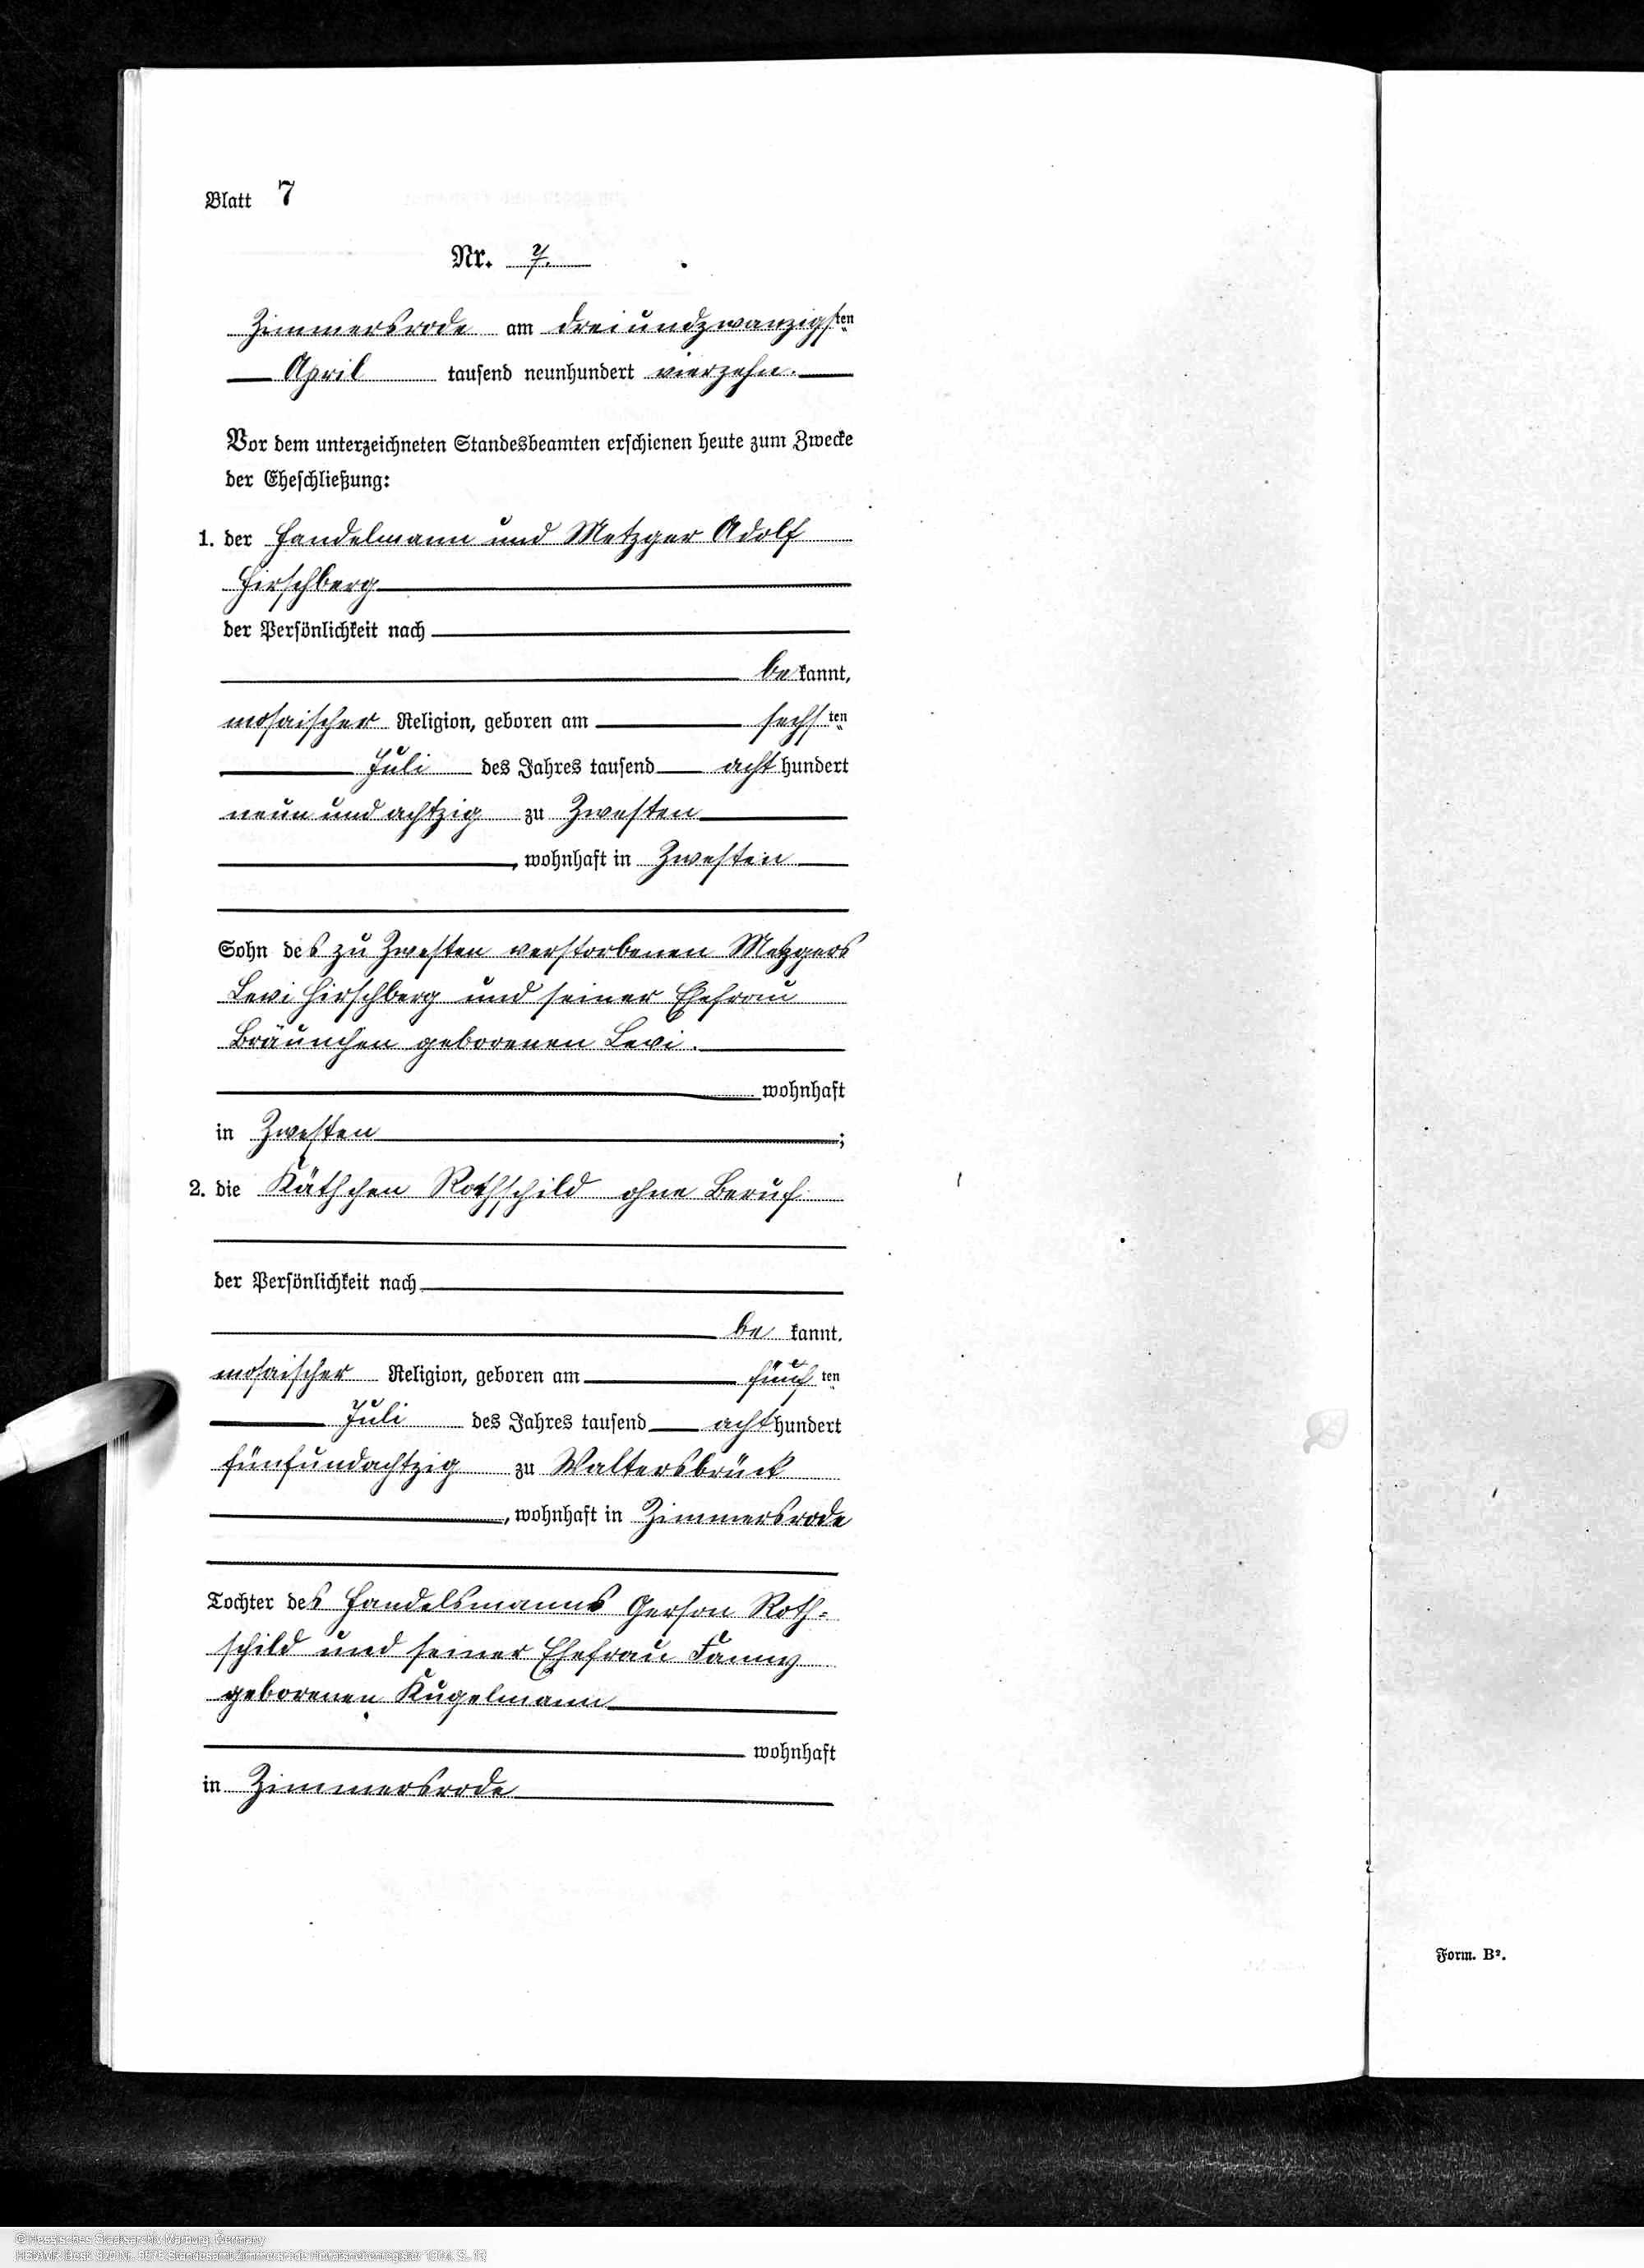 Blatt 7
Nr. 7.
Zimmersrode am dreiundzwanzigsten
April tausend neunhundert vierzehn.
Vor dem unterzeichneten Standesbeamten erschienen heute zum Zwecke
der Eheschließung:
1. der Handelmann und Metzger Adolf
Hirschberg
der Persönlichkeit nach
be kannt,
mosaischer Religion, geboren am sechsten
Juli des Jahres tausend acht hundert
neun und achtzig zu Zwesten
, wohnhaft in Zwesten
Sohn des zu Zwesten verstorbenen Metzgers
Levi Hirschberg und seiner Ehefrau
Bräunchen geborenen Levi.
wohnhaft
in Zwesten ;
2. die Käthchen Rothschild ohne Beruf
der Persönlichkeit nach
be kannt.
mosaischer Religion, geboren am fünften
Juli des Jahres tausend acht hundert
fünfundachtzig zu Waltersbrück
, wohnhaft in Zimmersrode
Tochter des Handelsmanns Gerson Roth-
schild und seiner Ehefrau Fanny
geborenen Kugelmann
wohnhaft
in Zimmersrode
Form. B².
© Hessisches Staatsarchiv Marburg, Germany